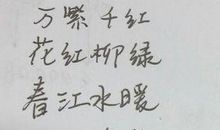 万紫千红
花红柳绿
春江水暖